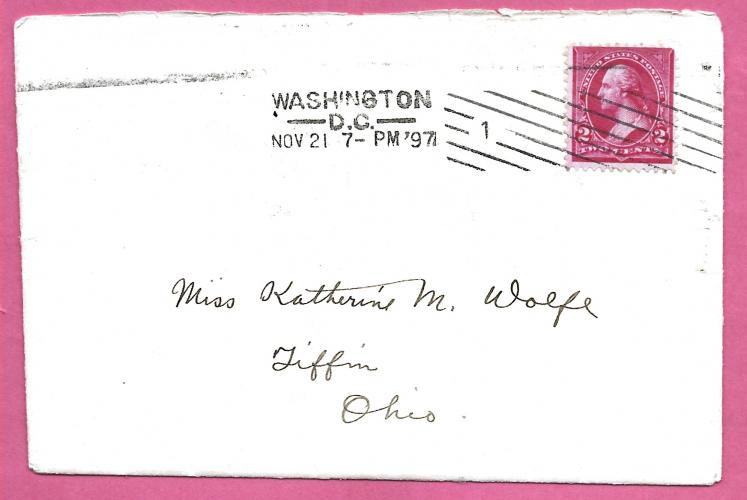 WASHINGTON
D.C.
NOV 21 7- PM '97
1
UNITED STATES POSTAGE
2 2
TWO CENTS
Miss Katherine M. Wolfe
Tiffin
Ohio.